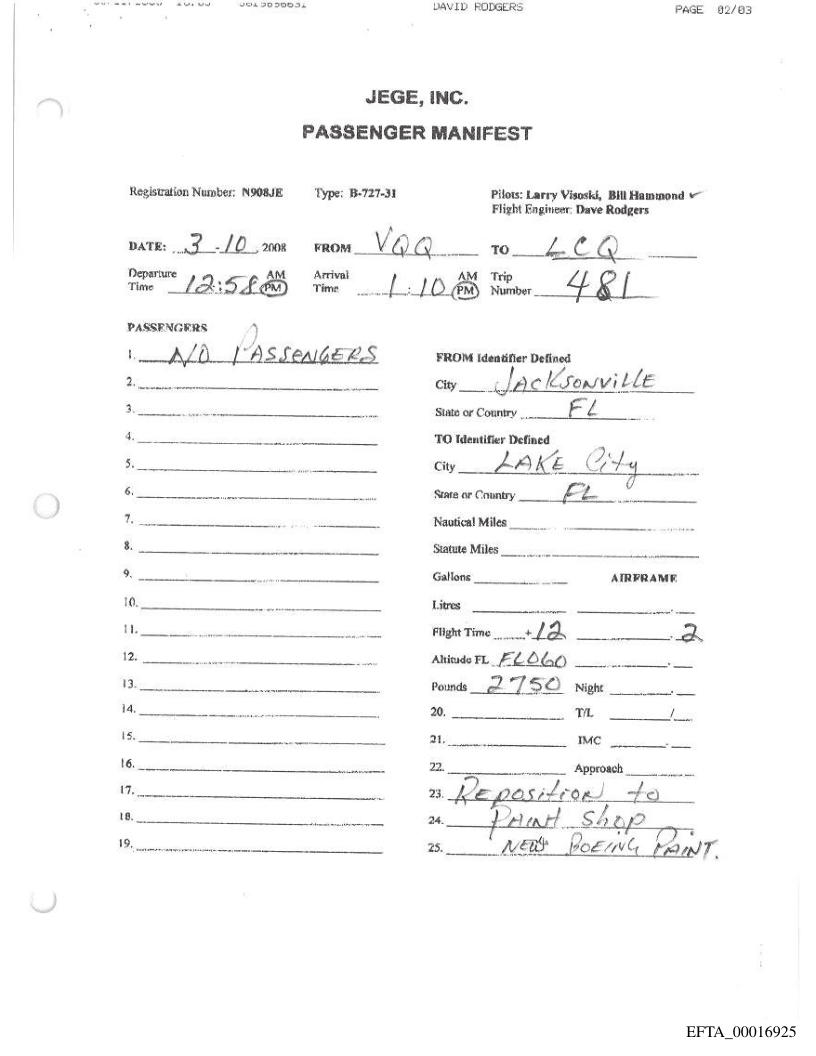 DAVID RODGERS PAGE 02/03
JEGE, INC.
PASSENGER MANIFEST
Registration Number: N908JE Type: B-727-31 Pilots: Larry Visoski, Bill Hammond ✓
Flight Engineer: Dave Rodgers
DATE: 3-10, 2008 FROM VQQ TO LCQ
Departure Time 12:58 AM PM Arrival Time 1:10 AM PM Trip Number 481
PASSENGERS
1. NO PASSENGERS
2.
3.
4.
5.
6.
7.
8.
9.
10.
11.
12.
13.
14.
15.
16.
17.
18.
19.
FROM Identifier Defined
City JACKSONVILLE
State or Country FL
TO Identifier Defined
City LAKE City
State or Country FL
Nautical Miles
Statute Miles
Gallons AIRFRAME
Litres
Flight Time +12 .2
Altitude FL FL060
Pounds 2750 Night
20. T/L /
21. IMC
22. Approach
23. REPOSITION to
24. PAINT Shop
25. NEW BOEING PAINT.
EFTA_00016925